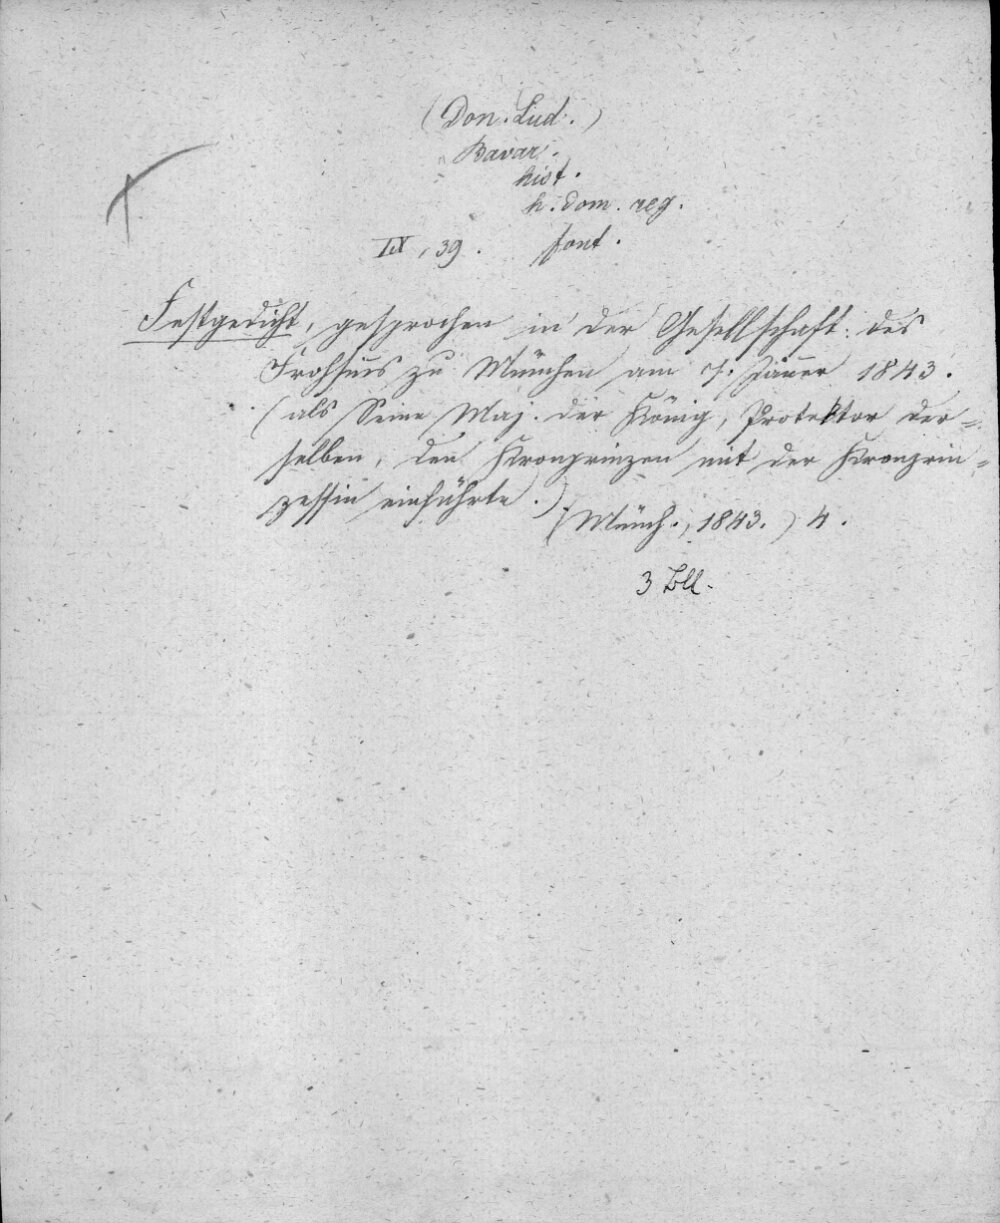 (Don. Lud.)
Bavar.
hist.
h. dom. reg.
IX, 39. font.
Festgedicht, gesprochen in der Gesellschaft des
Frohsins zu München am 7. Jäner 1843.
(als Seine Maj. der König, Protektor der=
selben, den Kronprinzen mit der Kronprin=
zessin einführte.)
(Münch., 1843.) 4.
3 Bll.